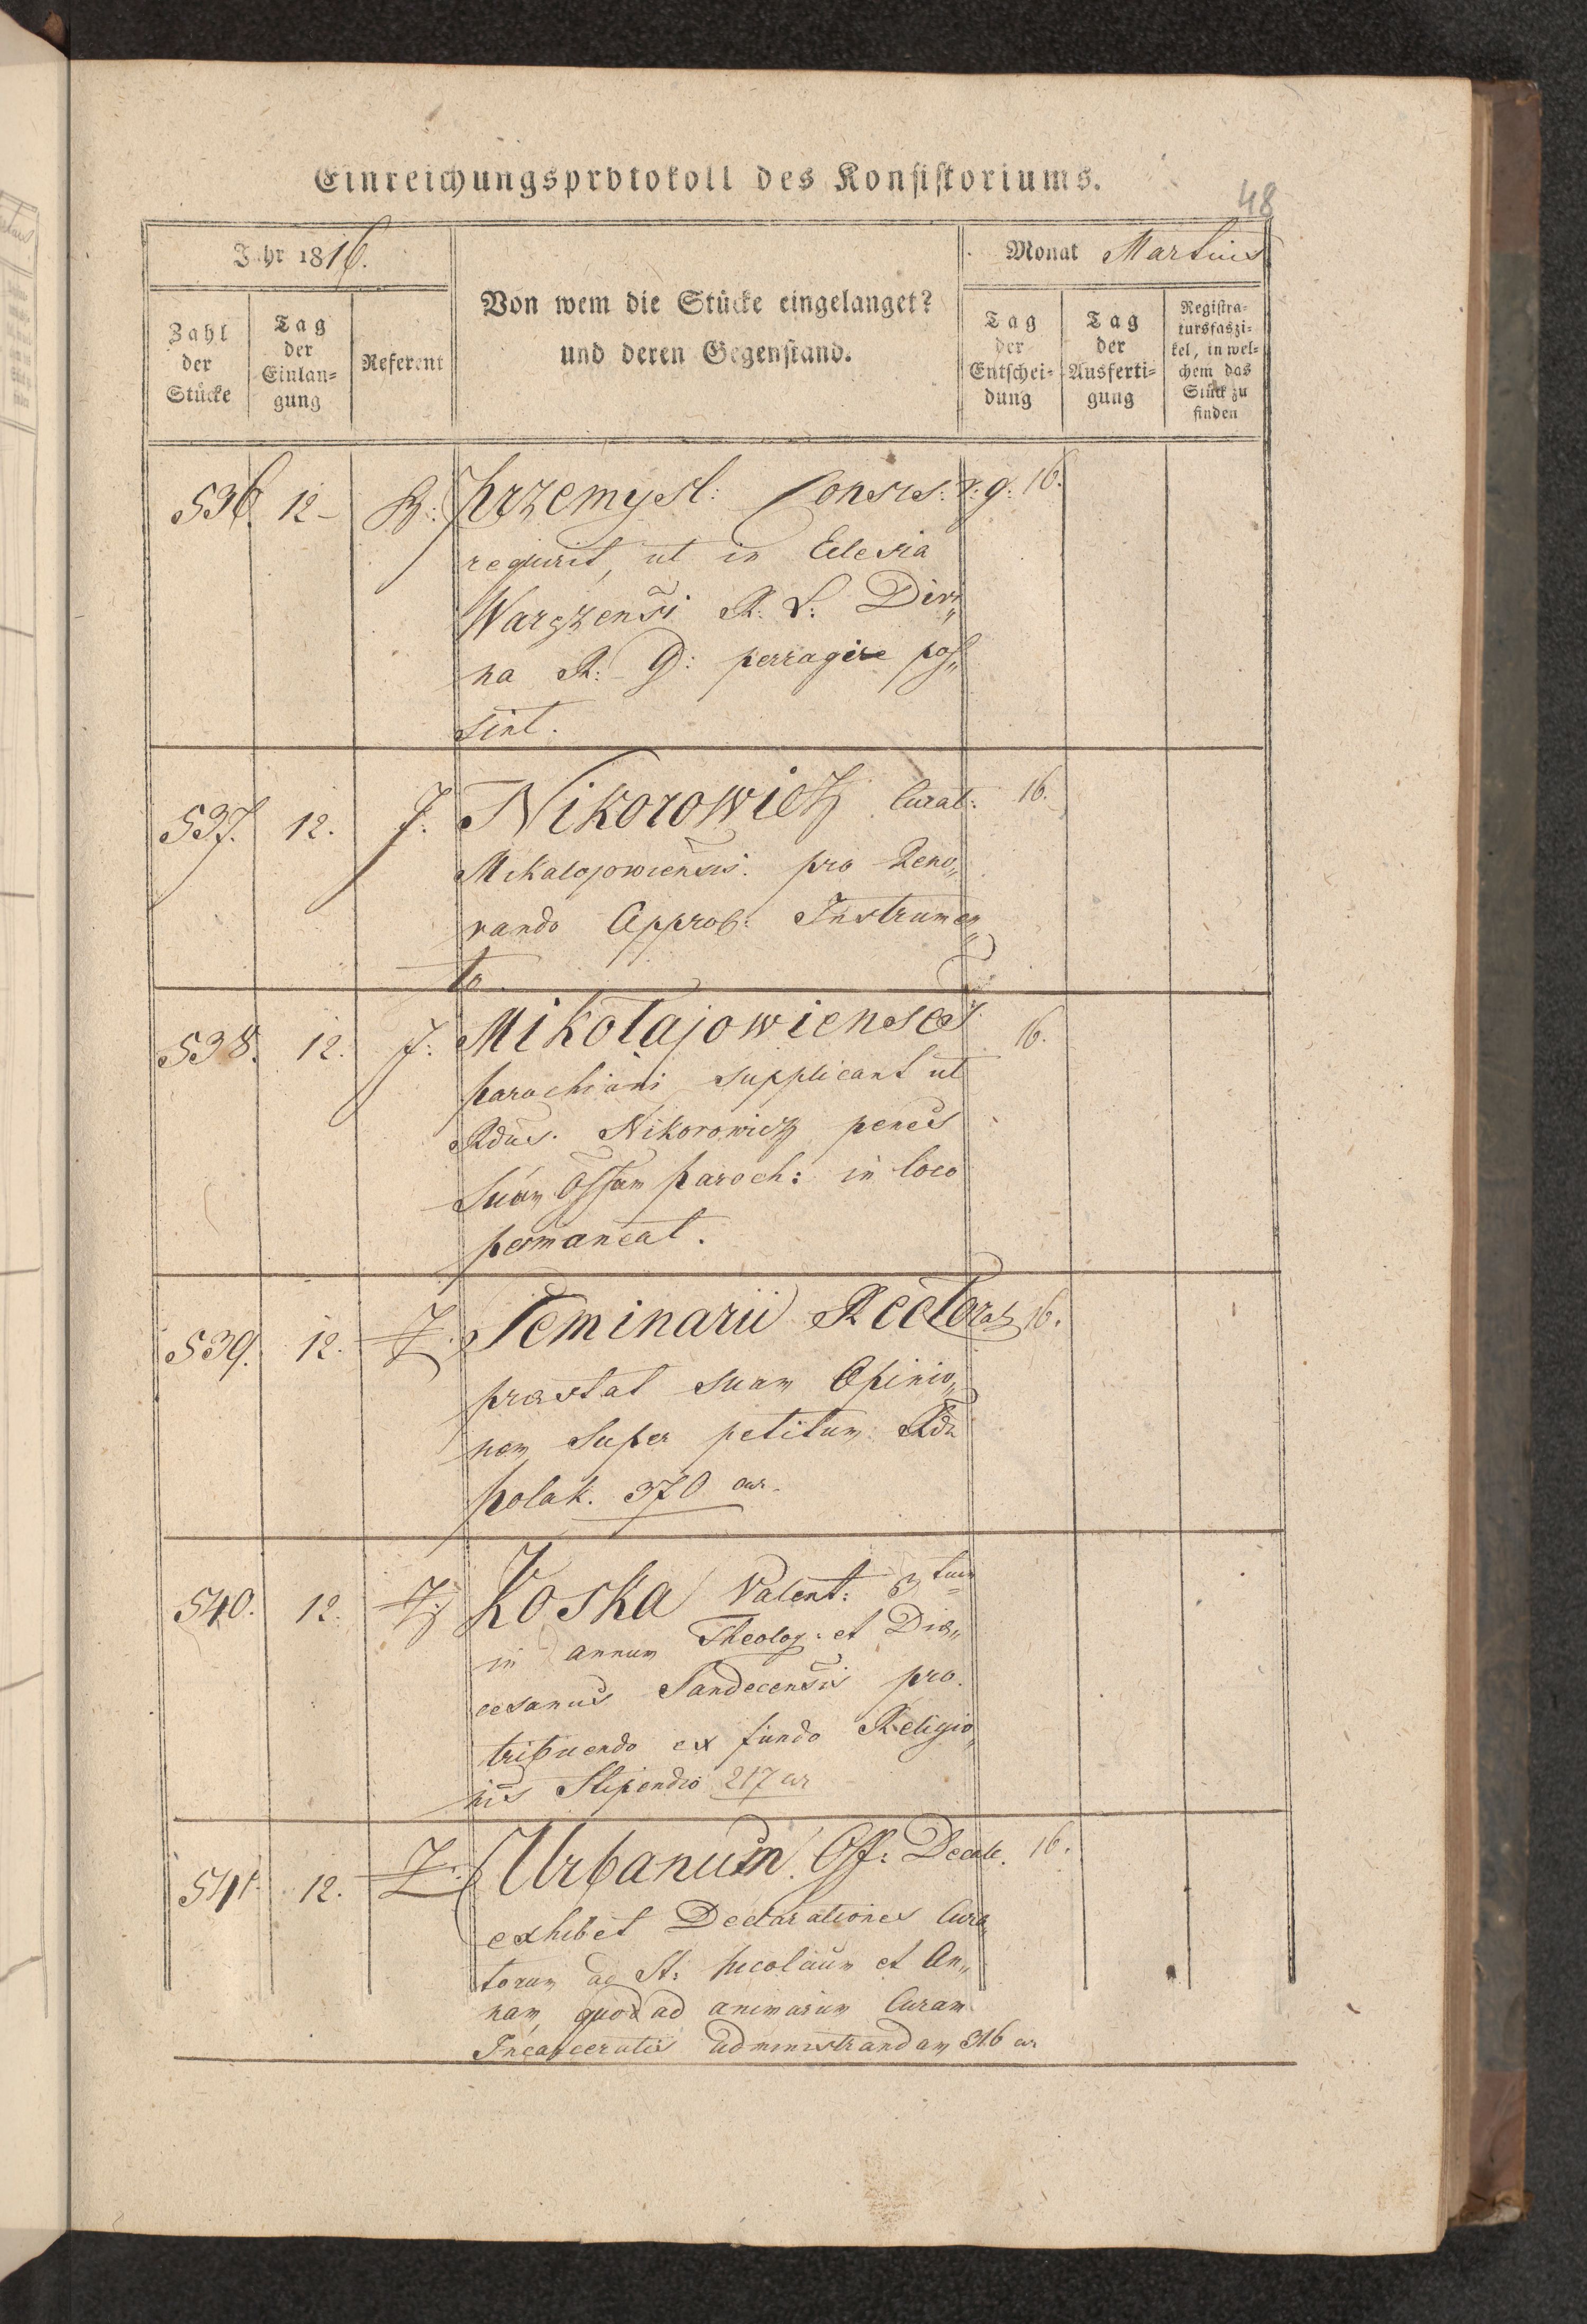 Einreichungsprotokoll des Konsistoriums.
48
Jahr 1816.
Monat Martius
Zahl der Stücke
Tag der Einlangung
Referent
Von wem die Stücke eingelanget?
und deren Gegenstand.
Tag der Entscheidung
Tag der Ausfertigung
Registratursfaszikel, in welchem das Stück zu finden
536. 12 B: Przemysl: Consis: r: g: 16.
requirit, ut in Eclesia
Waręzensi R. L: Divi„
na R: G: perragere pos„
sint.
537. 12. J: Nikorowicz Curat: 16.
Mikalajowiensis. pro Reno„
vando Approb: Instrumen„
to.
538. 12. J: Mikołajowienses 16.
parochiani supplicant ut
Rdus. Nikorowicz penes
suam Ossam paroch: in loco
permaneat.
539. 12. Z. Seminarii Rectorat 16.
praestat suam Opinio„
nem super petitum Rdi
Polak. 370 ar.
540. 12. Z: Koska Valent: 3tium
in annum Theolog: et Dioe„
cesanus Sandecensis pro
tribuendo ex fundo Religio„
nis Stipendio 217 ar
541. 12. Z: Urbanum Off: Decale. 16.
exhibet Declarationes Cura„
torum ad St: Nicolaum et An„
nam, quod ad animarum Curam
Incarceratis administrandam 316 ar